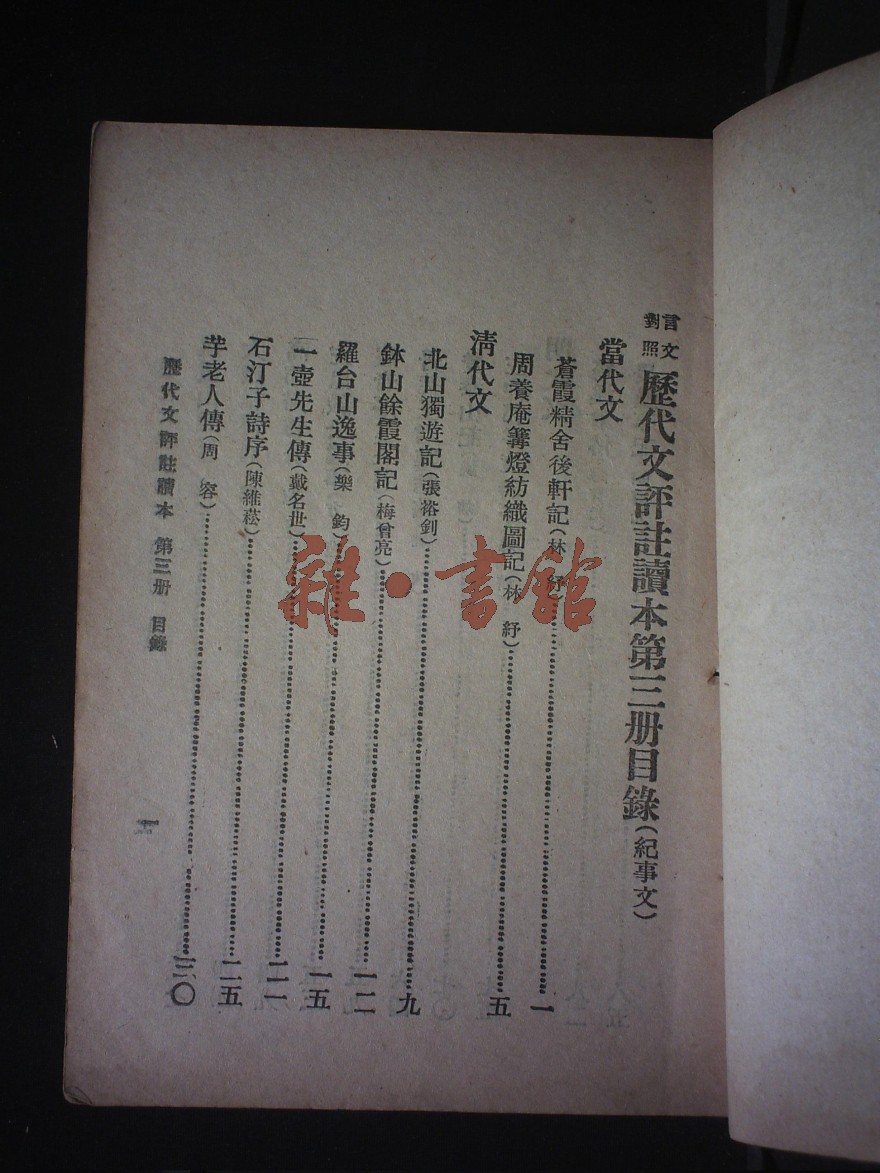 言文對照 歷代文評註讀本第三册目錄(紀事文)
當代文
蒼霞精舍後軒記(林 紓)……一
周養庵篝燈紡織圖記(林 紓)……五
淸代文
北山獨遊記(張裕釗)……九
鉢山餘霞閣記(梅曾亮)……一二
羅台山逸事(樂 鈞)……一五
一壺先生傳(戴名世)……二一
石汀子詩序(陳維菘)……二五
芋老人傳(周 容)……三〇
歷代文評註讀本 第三册 目錄
一
雜·書館